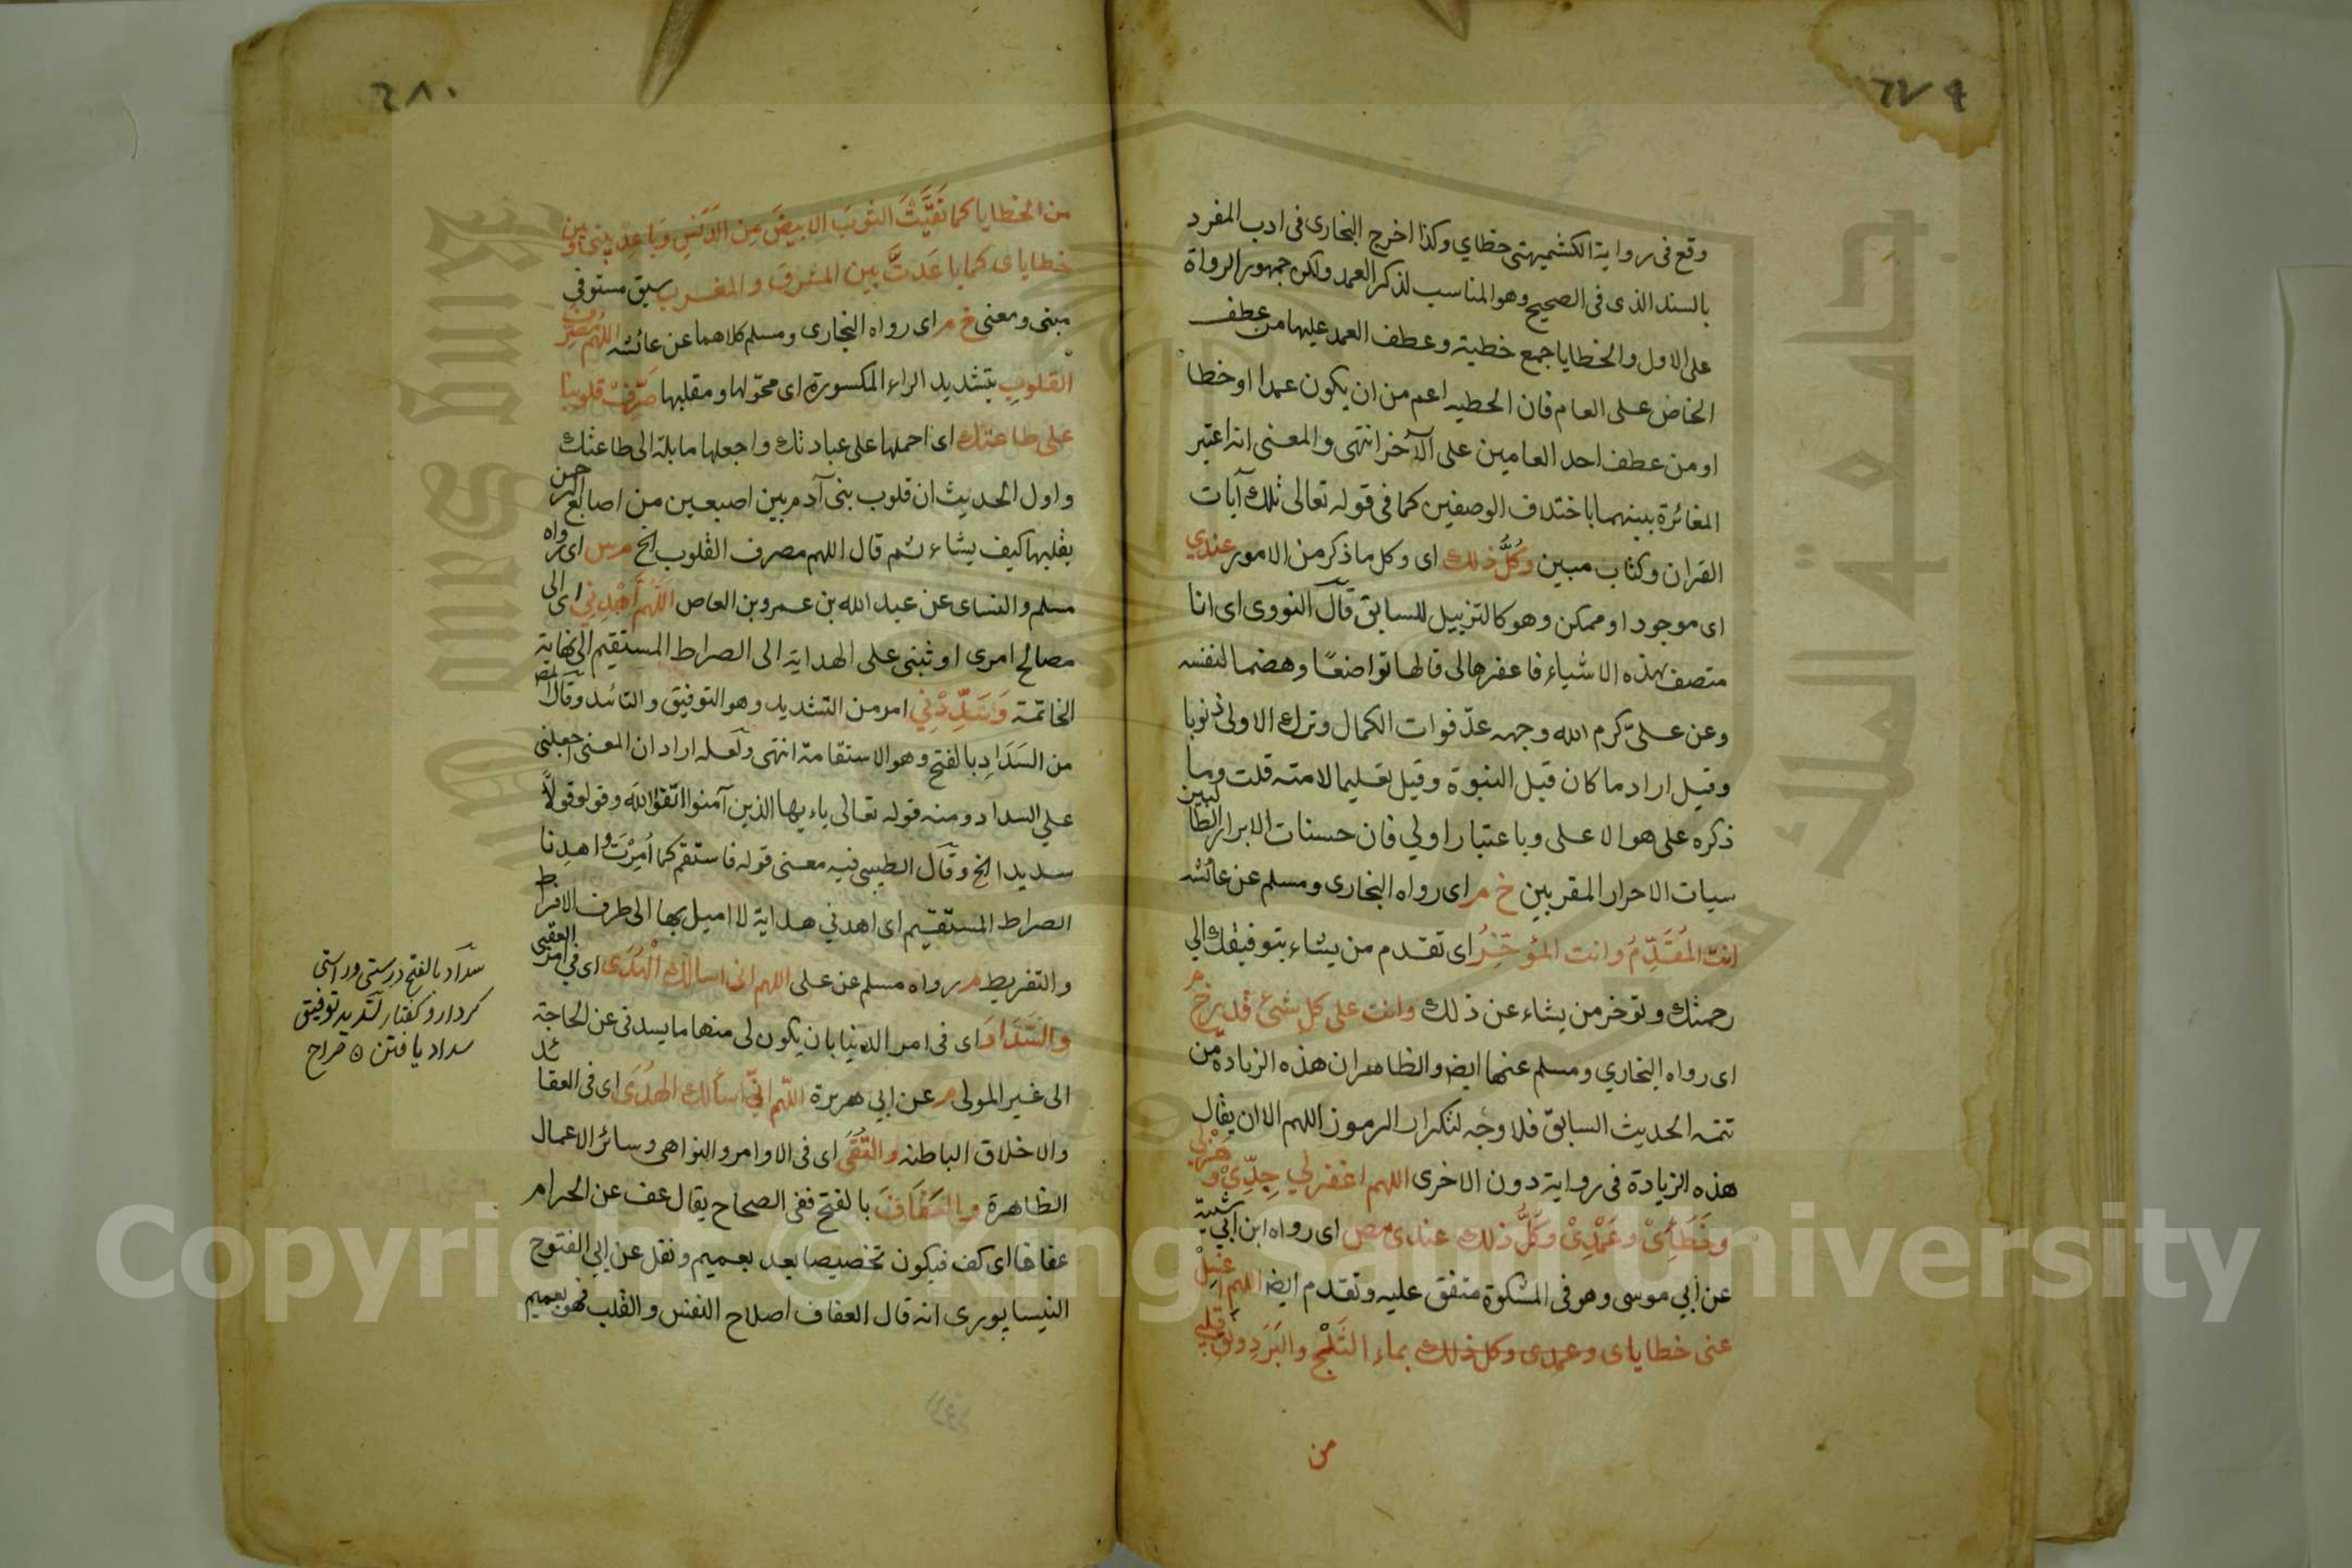 ٦٧٩
وقع فى رواية الكشميهنى خطاي وكذا اخرج البخارى فى ادب المفرد
بالسند الذى فى الصحيح وهو المناسب لذكر العمد ولكن جمهور الرواة
على الاول والخطايا جمع خطية وعطف العمد عليها من عطف
الخاص على العام فان الخطيه اعم من ان يكون عمدا او خطا
او من عطف احد العامين على الآخر انتهى والمعنى انه اعتبر
المغائرة بينهما باختلاف الوصفين كما فى قوله تعالى تلك آيات
القران وكتاب مبين وكُلُّ ذلك اى وكل ما ذكر من الامور عندي
اى موجود او ممكن وهو كالتزييل للسابق قال النووى اى انا
متصف بهذه الاشياء فاغفرها لى قالها تواضعًا وهضما لنفسه
وعن علىّ كرم الله وجهه عدّ فوات الكمال وترك الاولى ذنوبا
وقيل اراد ما كان قبل النبوة وقيل تعليما لامته قلت وما
ذكره على هو الاعلى وباعتبار اولي فان حسنات الابرار الطالبين
سيات الاحرار المقربين خ م اى رواه البخارى ومسلم عن عائشه
انت المُقَدِّمُ وانت المؤخِّرُ اى تقدم من يشاء بتوفيقك الي
رحمتك وتوخر من يشاء عن ذلك وانت على كل شئ قدير خ م
اى رواه البخاري ومسلم عنها ايضا والظاهر ان هذه الزيادة من
تتمه الحديث السابق فلا وجه لتكرار الرموز اللهم الا ان يقال
هذه الزيادة فى رواية دون الاخرى اللهم اغفر لي جِدِّىْ وهَزْلي
وخَطَإىْ وعَمْدِىْ وكُلُّ ذلك عندى مص اى رواه ابن ابي شيبة
عن ابي موسى وهو فى المشكوة متفق عليه وتقدم ايضا اللهم اغسِلْ
عنى خطاياى وعمدى وكل ذلك بماء الثَّلْجِ والبَرَدِ ونَقِّ قلبي
من
٦٨٠
من الخطايا كما نَقَّيْتَ الثوبَ الابيضَ مِن الدَنَسِ وبَاعِدْ بينى وبين
خطاياى كما باعَدتَّ بين المشرق والمغرب سبق مستوفي
مبنى ومعنى خ م اى رواه البخارى ومسلم كلاهما عن عائشه اللهم مُصَرِّفَ
القلوبِ بتشديد الراء المكسورة اى محوّلها ومقلبها صَرِّفْ قلوبنا
على طاعتك اى احملها على عبادتك واجعلها مايلة الى طاعتك
واول الحديث ان قلوب بنى آدم بين اصبعين من اصابع الرحمن
يقلبها كيف يشاء ثم قال اللهم مصرف القلوب الخ م س اى رواه
مسلم والنساى عن عبد الله بن عمرو بن العاص اللهُمَّ اهْدِنِي اى الى
مصالح امرى او ثبتنى على الهداية الى الصراط المستقيم الى نهاية
الخاتمة وَسَدِّدْنِي امر من التشديد وهو التوفيق والتائد وقال المص
من السَدَادِ بالفتح وهو الاستقامة انتهى ولعله اراد ان المعنى اجعلنى
علي السداد ومنه قوله تعالى ياءيها الذين آمنوا اتقوا الله وقولو قولاً
سديدا الخ وقال الطيبى فيه معنى قوله فاستقم كما اُمِرْتَ واهدِنا
الصراط المستقيم اى اهدني هداية لا اميل بها الى طرف الافراط
والتفريط م رواه مسلم عن على اللهم انى اسالك الْهُدَى اى فى امر العقبى
والسَّدَادَ اى فى امر الدنيا بان يكون لى منها ما يسدنى عن الحاجة
الى غير المولى م عن ابي هريرة اللّهم انّي اسألك الهُدَى اى فى العقائد
والاخلاق الباطنه والتُقَى اى فى الاوامر والنواهى وسائر الاعمال
الظاهرة والعَفَافَ بالفتح ففى الصحاح يقال عف عن الحرام
عفافا اى كف فيكون تخصيصا بعد بعميم ونقل عن ابي الفتوح
النيسابورى انه قال العفاف اصلاح النفس والقلب فهو تعميم
سداد بالفتح درستى وراستى
كردار وكفتار تسديد توفيق
سداد يافتن ٥ صراح
جامعة الملك سعود
King Saud University
Copyright © King Saud University